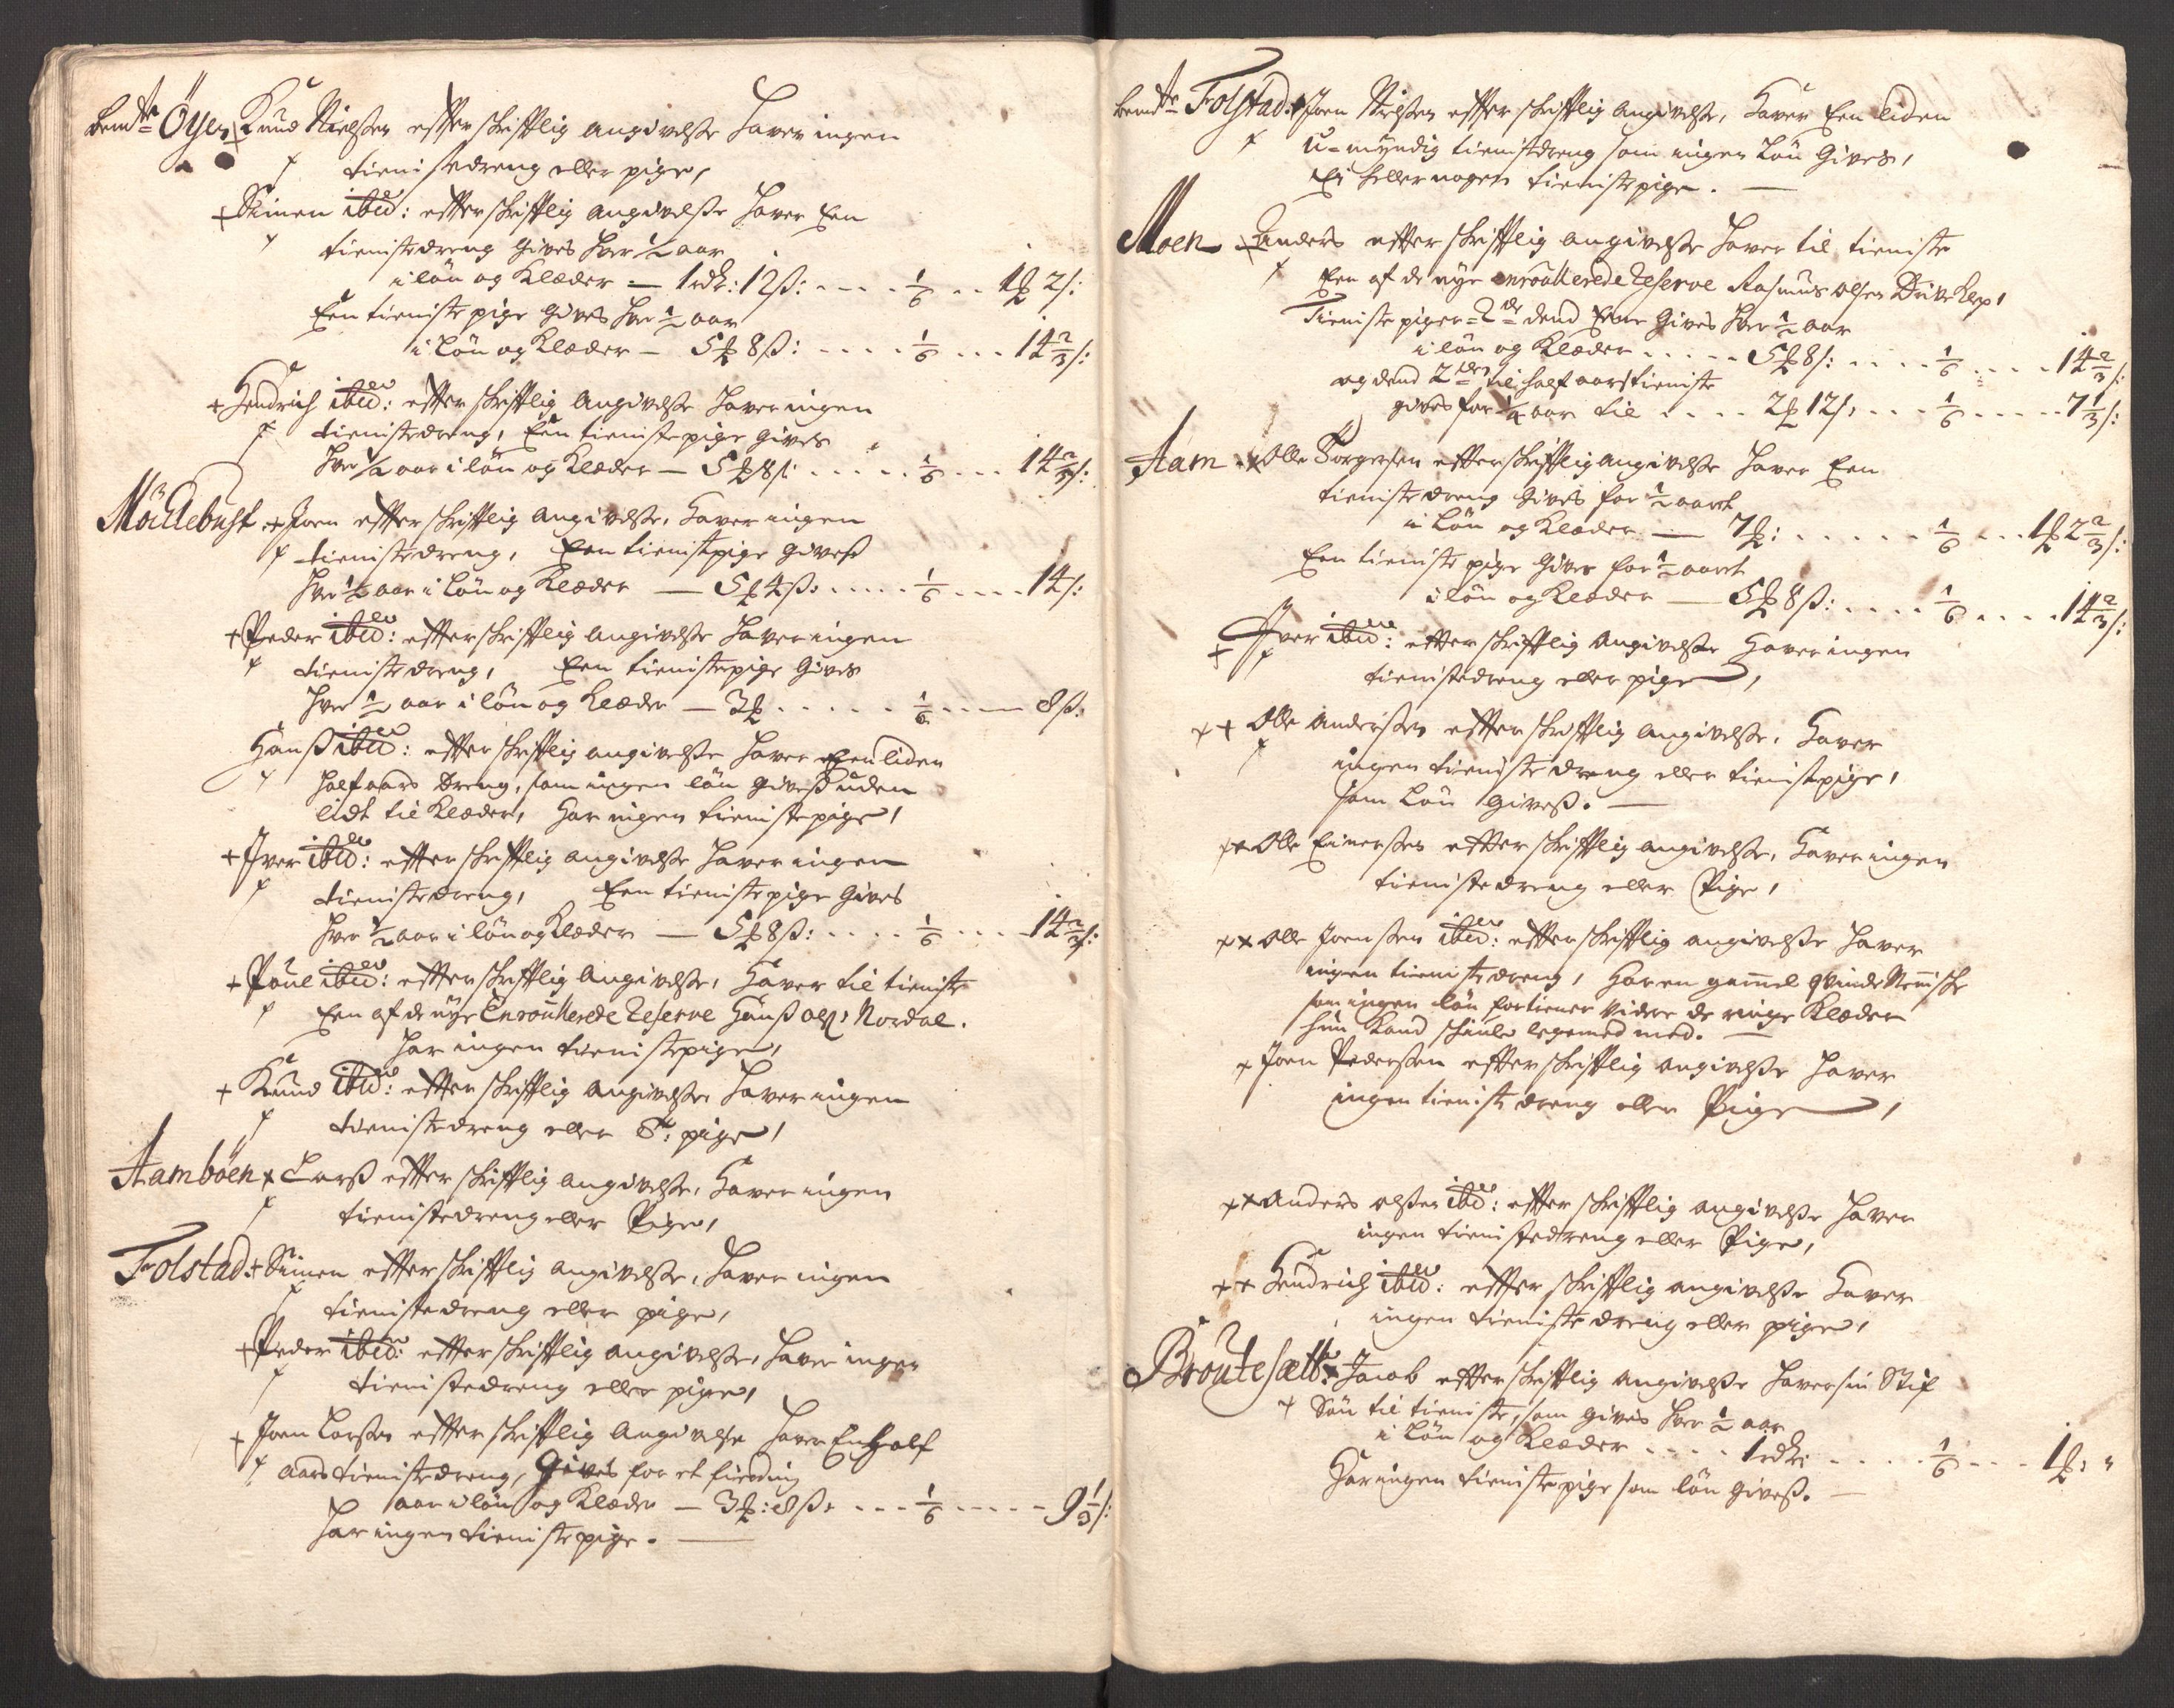 bemte Öyen Knud Nielsen effter skrifftlig angivelsse haver ingen
tienistedreng eller pige,
+ Simen ibid: effter skrifftlig angivelsse haver Een
tienistedreng gives hver 1/2 aar
i lön og Klæder — 1 rdr: 12 ß: .... 1/6 .. 1 ℔ 2 ß:
Een tieniste pige gives hver 1/2 aar
i Lön og Klæder — 5 ℔ 8 ß: .... 1/6 ... 14 2/3 ß:
+ Hendrich ibid: effter skrifftlig angivelsse haver ingen
tienistedreng, Een tieniste pige gives
hver 1/2 aar i lön og Klæder — 5 ℔ 8 ß: ..... 1/6 ... 14 2/3 ß:
Möcklebust + Joen effter skrifftlig angivelsse, haver ingen
tienistedreng, Een tienistpige giveß
hver 1/2 aar i Lön og Klæder — 5 ℔ 4 ß: ..... 1/6 .... 14 ß:
+ Peder ibid: effter skrifftlig angivelsse haver ingen
tienistedreng, Een tienistepige gives
hver 1/2 aar i lön og Klæder — 3 ℔ ..... 1/6 .... 8 ß:
Hanß ibid: effter skrifftlig angivelsse haver een liden
halfaars dreng, som ingen lön giveß uden
lidt til Klæder, har ingen tienistepige,
+ Iver ibid: effter skrifftlig angivelsse haver ingen
tienistedreng, Een tienistepige gives
hver 1/2 aar i lön og Klæder — 5 ℔ 8 ß: .... 1/6 ... 14 2/3 ß:
+ Poul ibid: effter skrifftlig angivelsse, haver til tieniste
Een af de nye Enroullerede Reserve Hanß ols: Nordal.
har ingen tienistepige,
+ Knud ibid: effter skrifftlig angivelsse haver ingen
tienistedreng eller pige,
Aamböen + Larß effter skrifftlig angivelsse, haver ingen
tienistedreng eller Pige,
Folstad: + Simen effter skrifftlig angivelsse, haver ingen
tienistedreng eller pige,
+ Peder ibid: effter skrifftlig angivelsse, haver ingen
tienistedreng eller pige,
+ Joen Larssen effter skrifftlig angivelsse haver En half
aars tienistedreng, Gives for et fierding
aar i lön og Klæder — 3 ℔: 8 ß: ... 1/6 ..... 9 1/3 ß:
har ingen tienistepige. —
bemte Folstad: + Joen Nielssen effter skrifftlig angivelsse, haver Een liden
u-myndig tienistdreng som ingen Lön Gives,
Ei heller nogen tienistepige. —
Moen + Anders effter skrifftlig angivelsse haver til tieniste
Een af de nye enroullerede Reserve Rasmus olsen
Tieniste piger = 2de dend Eene gives hver 1/2 aar
i lön og Klæder ..... 5 ℔ 8 ß: .... 1/6 .... 14 2/3 ß:
og dend 2den til half aars tieniste
gives for 1/4 aar til .... 2 ℔ 12 ß: ... 1/6 ..... 7 1/3 ß:
Aam + Olle Torgersen effter skrifftlig angivelsse haver Een
tieniste dreng gives for 1/2 aaret
i Lön og Klæder — 7 ℔: ..... 1/6 ... 1 ℔ 2 2/3 ß:
Een tieniste pige gives for 1/2 aaret
i lön og Klæder — 5 ℔ 8 ß: .... 1/6 .... 14 2/3 ß:
+ Iver ibid: effter skrifftlig angivelsse haver ingen
tienistedreng eller pige,
++ Olle Anderssen effter skrifftlig angivelsse, haver
ingen tieniste dreng eller tienistpige,
som Lön giveß. —
++ Olle Einerssen effter skrifftlig angivelsse, haver ingen
tienistedreng eller Pige,
++ Olle Joenssen ibid: effter skrifftlig angivelsse haver
ingen tienistedreng, har en gammel qvinde Menische
som ingen lön fortiener videre de ringe Klæder
hun kand skiule legemed med. —
+ Joen Pederssen effter skrifftlig angivelsse haver
ingen tieniste dreng eller Pige,
++ Anders olssen ibid: effter skrifftlig angivelsse haver
ingen tienistedreng eller Pige,
++ Hendrich ibid: effter skrifftlig angivelsse haver
ingen tieniste dreng eller pige,
Broutesætt: + Jacob effter skrifftlig angivelsse haver sin Stif
Sön til tieniste, som gives hver 1/2 aar
i Lön og Klæder .... 1 rdr: .... 1/6 ... 1 ℔: "
Har ingen tienistepige som lön giveß. —